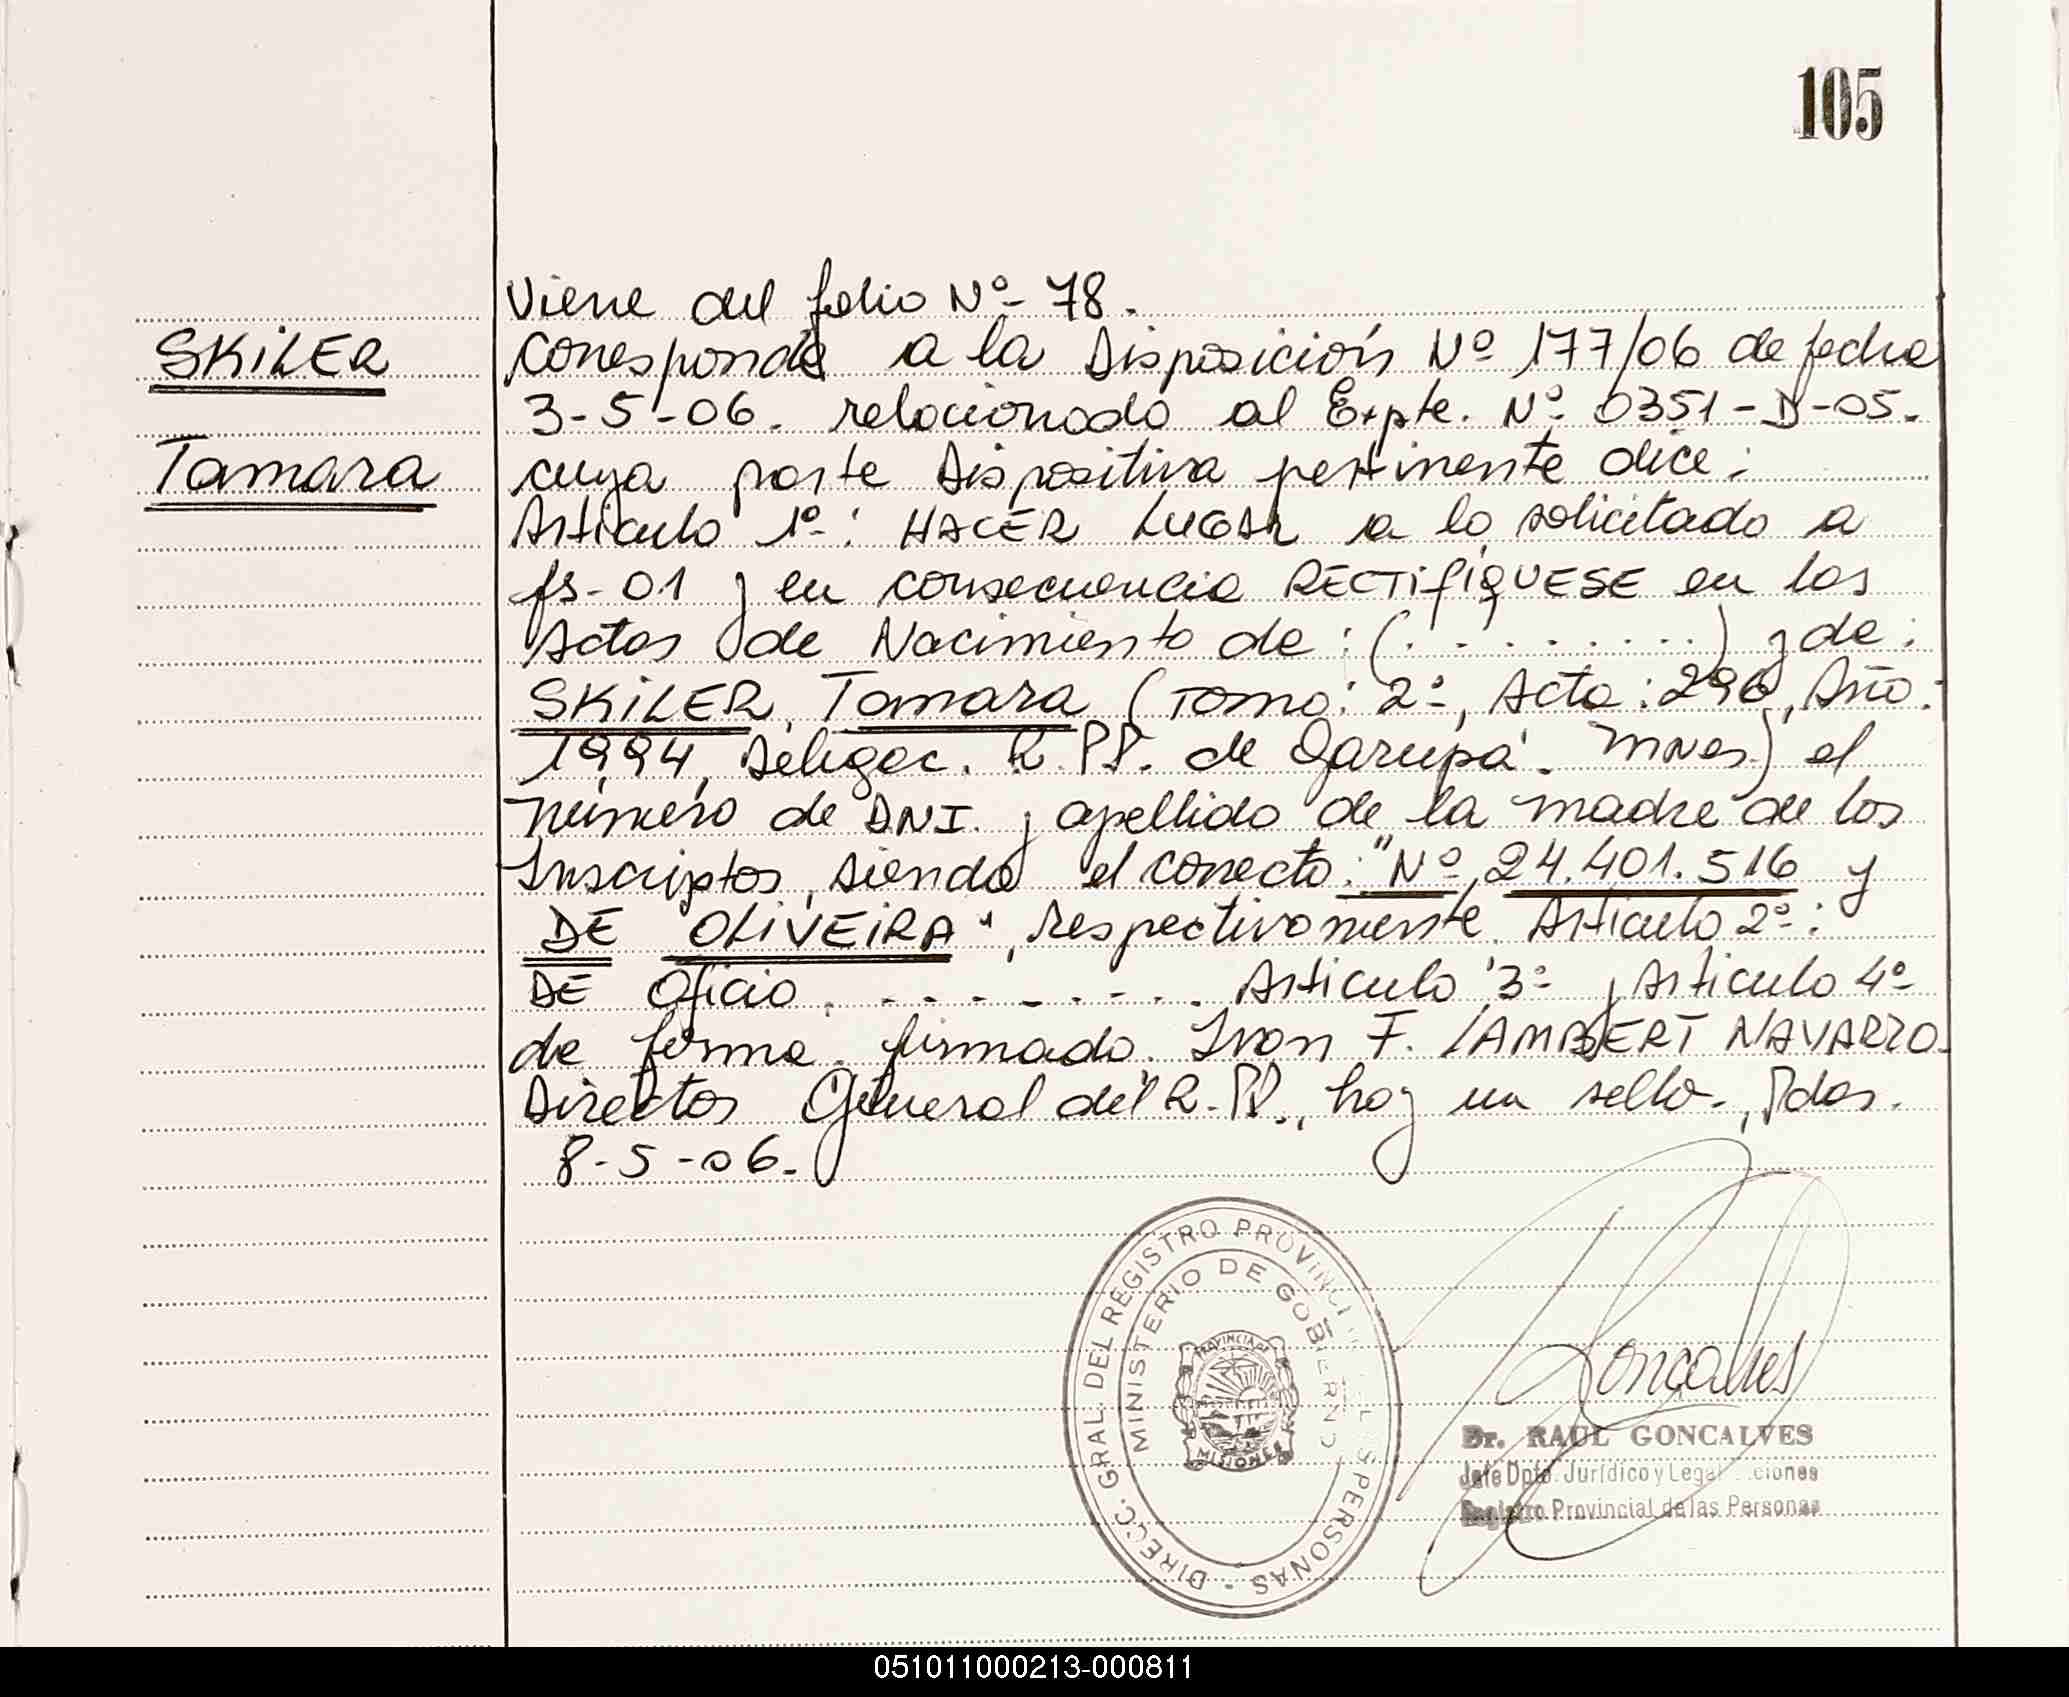 105
Viene del folio Nº 78.
SKILER
Corresponde a la Disposición Nº 177/06 de fecha
3-5-06. relacionado al Expte. Nº 0351-D-05.
Tamara
cuya parte Dispositiva pertinente dice:
Artículo 1º: HACER LUGAR a lo solicitado a
fs-01 y en consecuencia RECTIFÍQUESE en las
Actas de Nacimiento de: (. . . . . . . . .) y de:
SKILER, Tamara (Tomo: 2º, Acta: 296, Año:
1994, Delegac. R.PP. de Garupá. Mnes) el
número de DNI. y apellido de la madre de los
Inscriptos, siendo el correcto: "Nº 24.401.516 y
DE OLIVEIRA", respectivamente. Artículo 2º:
DE Oficio. . . . . . . . Artículo 3º y Artículo 4º
de forma. firmado. Ivon F. LAMBERT NAVARRO.
Director General del R.PP., hay un sello., Pdas.
8-5-06.
DIRECC. GRAL. DEL REGISTRO PERSONAS -
MINISTERIO DE GOBIERNO
PROVINCIA DE
MISIONES
Goncalves
Dr. RAUL GONCALVES
Jefe Dpto. Jurídico y
Registro Provincial de las Personas
051011000213-000811